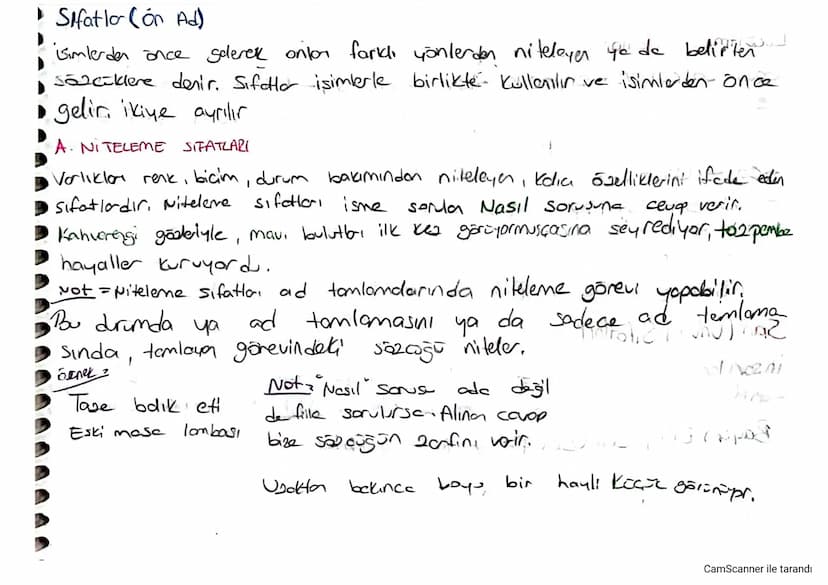 Sıfatlar (Ön Ad)
isimlerden önce gelerek onları farklı yönlerden niteleyen ya da belirten
sözcüklere denir. Sıfatlar isimlerle birlikte kullanılır ve isimlerden önce
gelir. ikiye ayrılır
A. NİTELEME SIFATLARI
Varlıkları renk, biçim, durum bakımından niteleyen, kalıcı özelliklerini ifade eden
sıfatlardır. Niteleme sıfatları isme sorulan Nasıl sorusuna cevap verir.
Kahverengi gözleriyle, mavi bulutları ilk kez görüyormuşçasına seyrediyor, tozpembe
hayaller kuruyordu.
Not = Niteleme sıfatları ad tamlamalarında niteleme görevi yapabilir.
Bu drumda ya ad tamlamasını ya da sadece ad tamlama
sında, tamlayan görevindeki sözcüğü niteler.
örnek:
Taze balık eti
Eski masa lambası
Not: "Nasıl" sorusu ada değil
de fiile sorulursa Alınan cevap
bize sözcüğün zarfını verir.
Uzaktan bakınca boyu bir hayli küçük görünüyor.
CamScanner ile tarandı